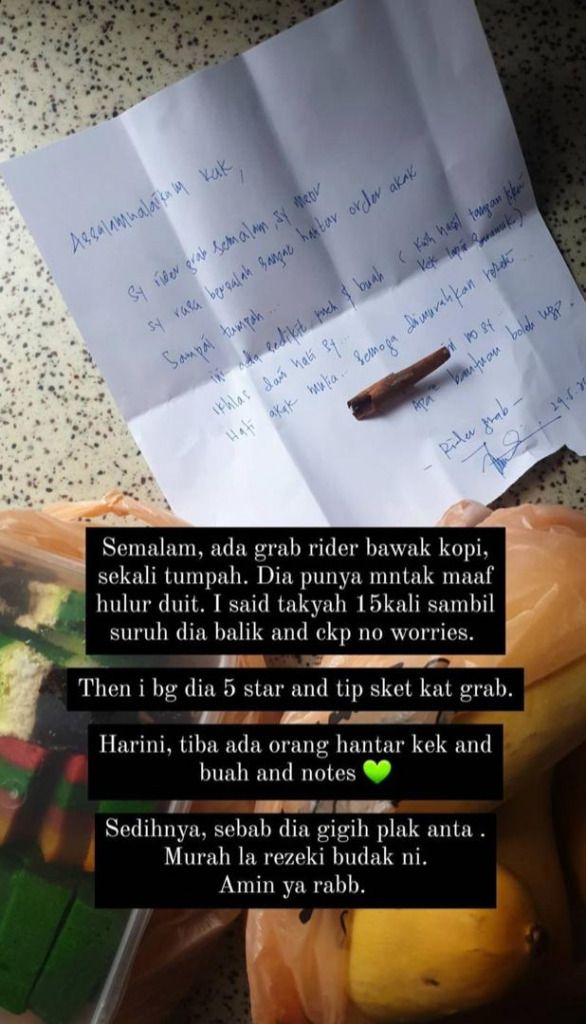 Assalamualaikum kak,
Sy rider grab semalam, sy
sy rasa bersalah sangat hantar order akak
Sampai tumpah...
ini ada sedikit kek & buah (kuih hasil tangan
ikhlas dari hati sy... kek lapis Sarawak)
Hati akak mulia... Semoga dimurahkan rezeki...
no sy...
Apa2 bantuan boleh wsp.
- Rider grab -
Semalam, ada grab rider bawak kopi,
sekali tumpah. Dia punya mntak maaf
hulur duit. I said takyah 15kali sambil
suruh dia balik and ckp no worries.
Then i bg dia 5 star and tip sket kat grab.
Harini, tiba ada orang hantar kek and
buah and notes 💚
Sedihnya, sebab dia gigih plak anta .
Murah la rezeki budak ni.
Amin ya rabb.